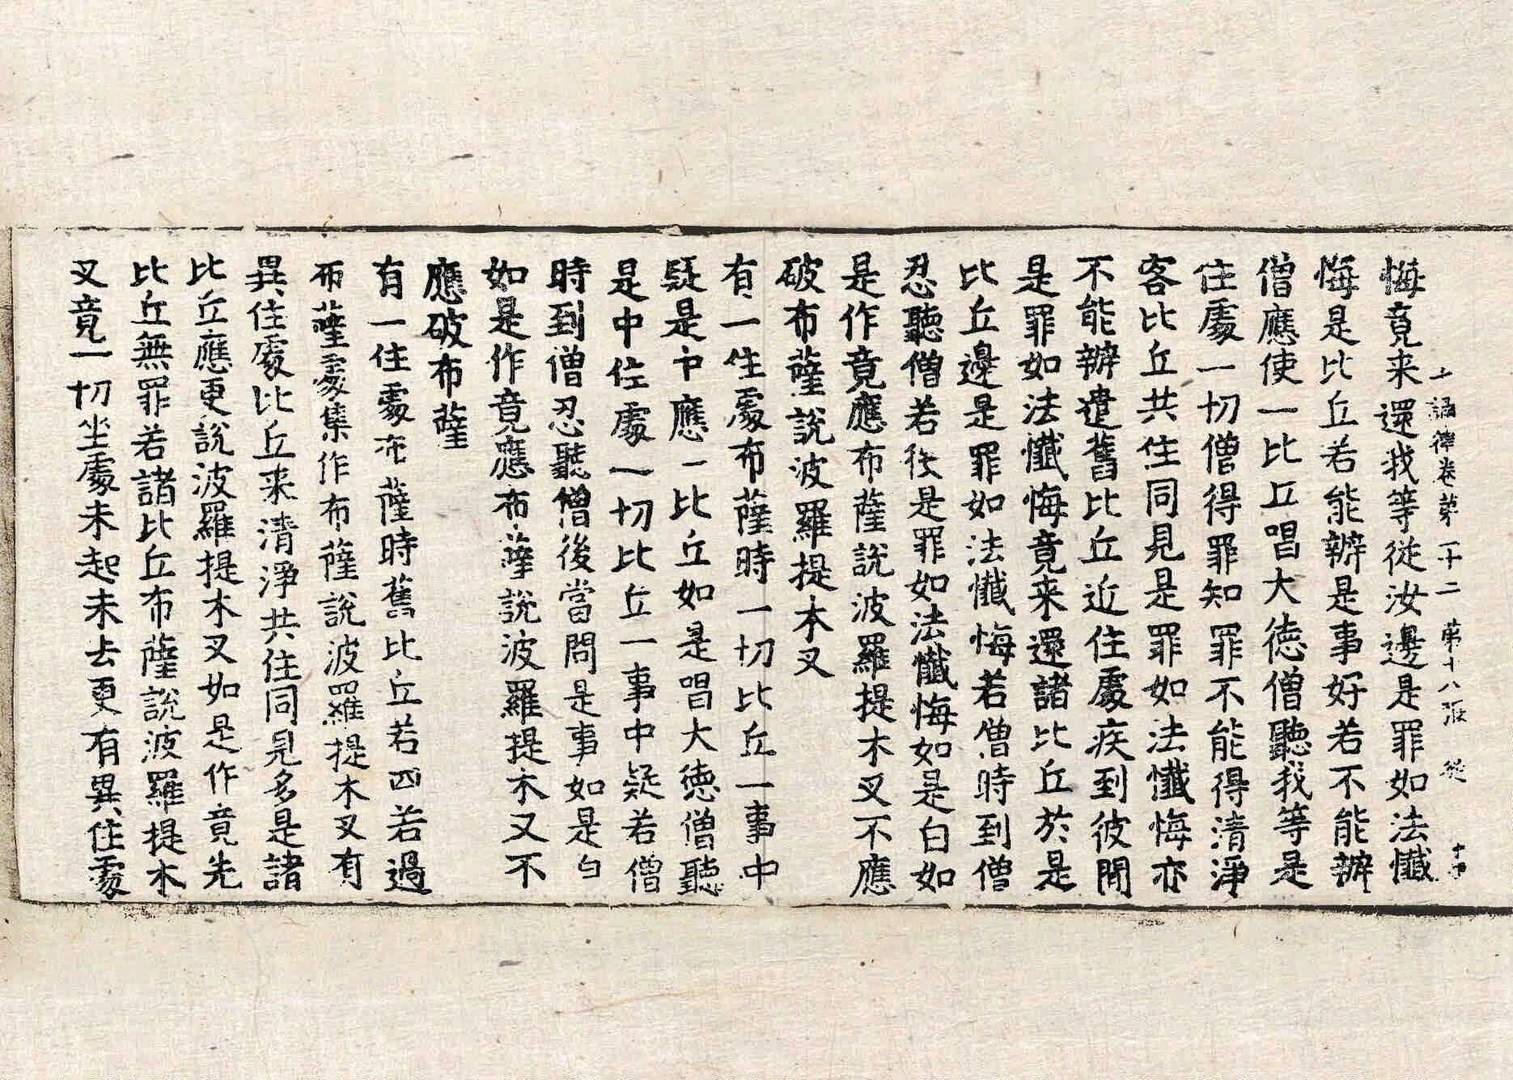 十誦律卷第二十二 第十八張 從
悔竟来還我等從汝邊是罪如法懺
悔是比丘若能辦是事好若不能辦
僧應使一比丘唱大徳僧聽我等是
住處一切僧得罪知罪不能得清淨
客比丘共住同見是罪如法懺悔亦
不能辦遣舊比丘近住處疾到彼間
是罪如法懺悔竟来還諸比丘於是
比丘邊是罪如法懺悔若僧時到僧
忍聽僧若後是罪如法懺悔如是白如
是作竟應布薩說波羅提木叉不應
破布薩說波羅提木叉
有一住處布薩時一切比丘一事中
疑是中應一比丘如是唱大徳僧聽
是中住處一切比丘一事中疑若僧
時到僧忍聽僧後當問是事如是白
如是作竟應布薩說波羅提木叉不
應破布薩
有一住處布薩時舊比丘若四若過
布薩處集作布薩說波羅提木叉有
異住處比丘来清淨共住同見多是諸
比丘應更說波羅提木叉如是作竟先
比丘無罪若諸比丘布薩說波羅提木
叉竟一切坐處未起未去更有異住處